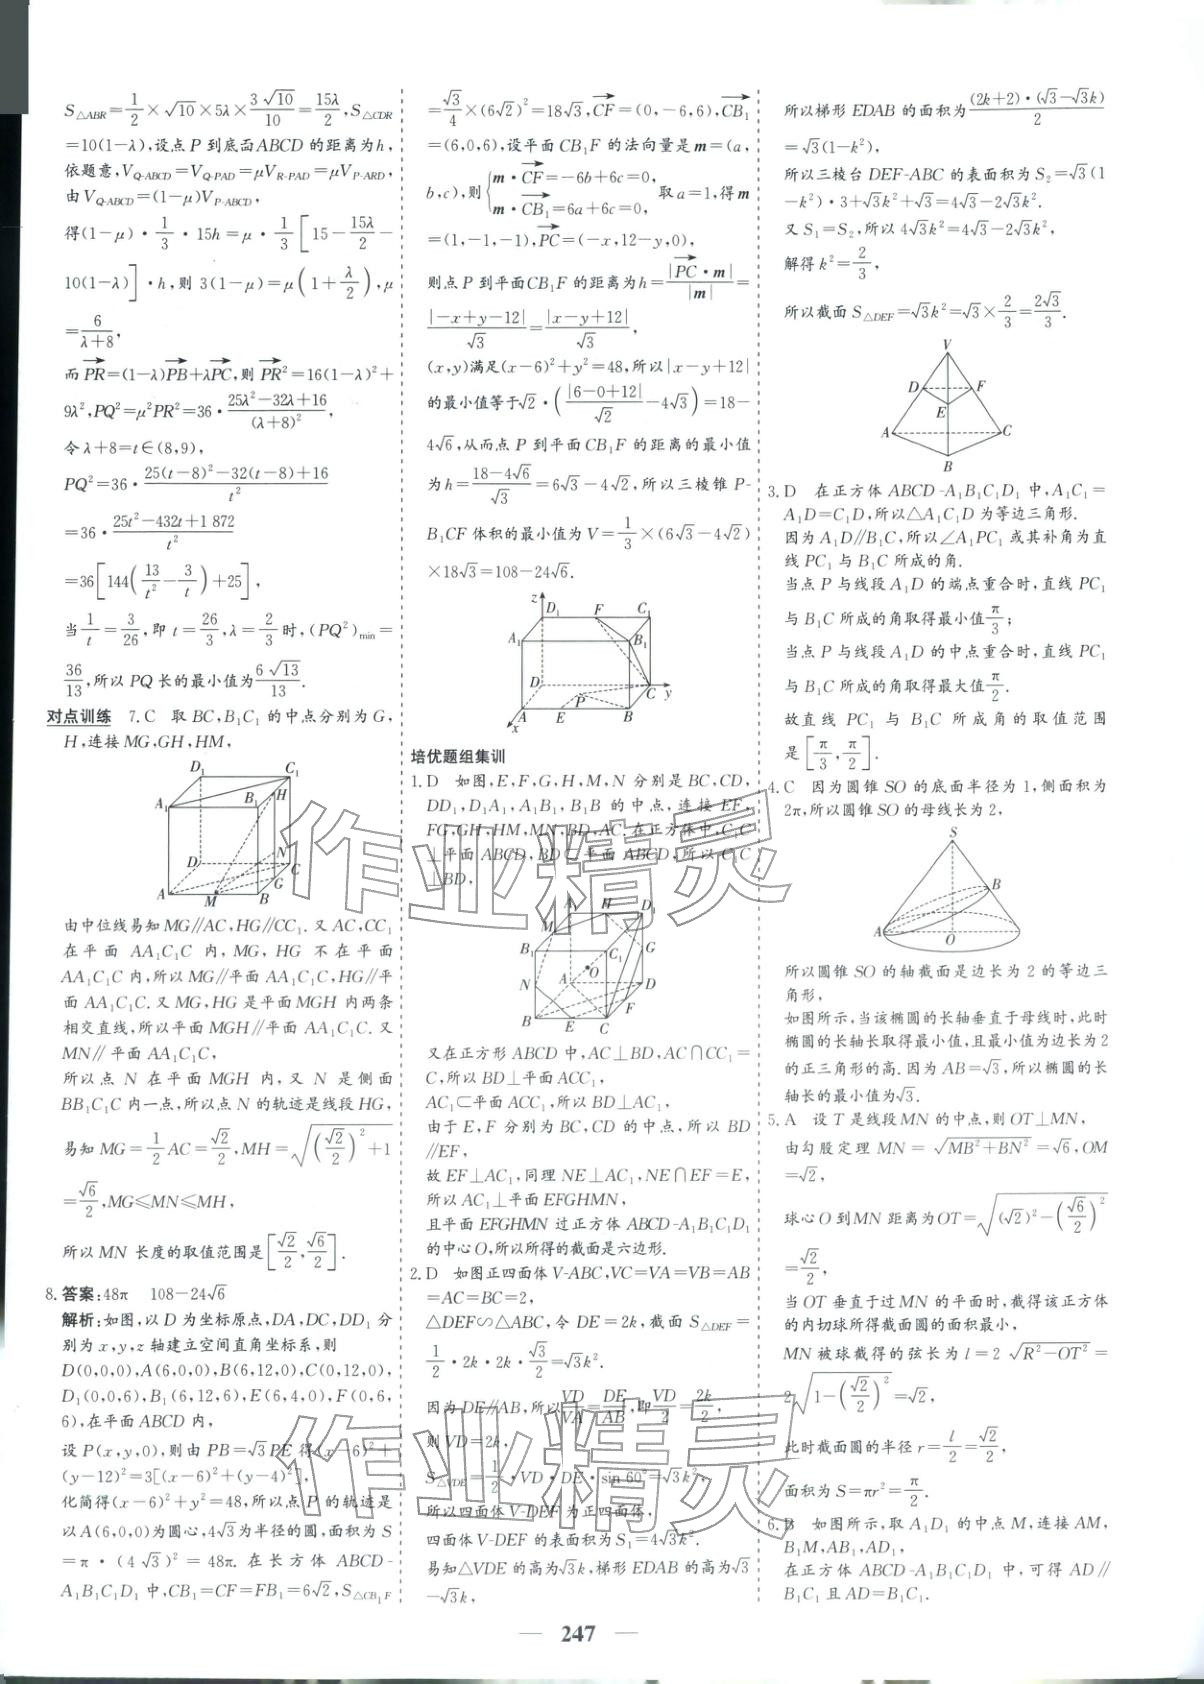 S△ABR=1/2×√10×5λ×3√10/10=15λ/2,S△CDR
=10(1-λ),设点P到底面ABCD的距离为h,
依题意,V_Q-ABCD=V_Q-PAD=μV_R-PAD=μV_P-ARD,
由V_Q-ABCD=(1-μ)V_P-ABCD,
得(1-μ)·1/3·15h=μ·1/3[15-15λ/2-
10(1-λ)]·h,则3(1-μ)=μ(1+λ/2),μ
=6/(λ+8),
而PR→=(1-λ)PB→+λPC→,则PR→²=16(1-λ)²+
9λ²,PQ²=μ²PR²=36·(25λ²-32λ+16)/(λ+8)²,
令λ+8=t∈(8,9),
PQ²=36·(25(t-8)²-32(t-8)+16)/t²
=36·(25t²-432t+1 872)/t²
=36[144(13/t²-3/t)+25],
当1/t=3/26,即t=26/3,λ=2/3时,(PQ²)min=
36/13,所以PQ长的最小值为6√13/13.
对点训练 7.C 取BC,B₁C₁的中点分别为G,
H,连接MG,GH,HM,
D₁ C₁ A₁ B₁ H N D C G A M B
由中位线易知MG∥AC,HG∥CC₁.又AC,CC₁
在平面AA₁C₁C内,MG,HG不在平面
AA₁C₁C内,所以MG∥平面AA₁C₁C,HG∥平
面AA₁C₁C.又MG,HG是平面MGH内两条
相交直线,所以平面MGH∥平面AA₁C₁C.又
MN∥平面AA₁C₁C,
所以点N在平面MGH内,又N是侧面
BB₁C₁C内一点,所以点N的轨迹是线段HG,
易知MG=1/2AC=√2/2,MH=√((√2/2)²+1)
=√6/2,MG≤MN≤MH,
所以MN长度的取值范围是[√2/2,√6/2].
8.答案:48π 108-24√6
解析:如图,以D为坐标原点,DA,DC,DD₁分
别为x,y,z轴建立空间直角坐标系,则
D(0,0,0),A(6,0,0),B(6,12,0),C(0,12,0),
D₁(0,0,6),B₁(6,12,6),E(6,4,0),F(0,6,
6),在平面ABCD内,
设P(x,y,0),则由PB=√3PE得(x-6)²+
(y-12)²=3[(x-6)²+(y-4)²],
化简得(x-6)²+y²=48,所以点P的轨迹是
以A(6,0,0)为圆心,4√3为半径的圆,面积为S
=π·(4√3)²=48π.在长方体ABCD-
A₁B₁C₁D₁中,CB₁=CF=FB₁=6√2,S△CB₁F
=√3/4×(6√2)²=18√3,CF→=(0,-6,6),CB₁→
=(6,0,6),设平面CB₁F的法向量是m=(a,
b,c),则{m·CF→=-6b+6c=0, m·CB₁→=6a+6c=0, 取a=1,得m
=(1,-1,-1),PC→=(-x,12-y,0),
则点P到平面CB₁F的距离为h=|PC→·m|/|m|=
|-x+y-12|/√3=|x-y+12|/√3,
(x,y)满足(x-6)²+y²=48,所以|x-y+12|
的最小值等于√2·(|6-0+12|/√2-4√3)=18-
4√6,从而点P到平面CB₁F的距离的最小值
为h=(18-4√6)/√3=6√3-4√2,所以三棱锥P-
B₁CF体积的最小值为V=1/3×(6√3-4√2)
×18√3=108-24√6.
z D₁ F C₁ A₁ B₁ D C y P A E B x
培优题组集训
1.D 如图,E,F,G,H,M,N分别是BC,CD,
DD₁,D₁A₁,A₁B₁,B₁B的中点,连接EF,
FG,GH,HM,MN,BD,AC.在正方体中,C₁C
⊥平面ABCD,BD⊂平面ABCD,所以C₁C
⊥BD,
A₁ H D₁ M B₁ C₁ G O N A D F B E C
又在正方形ABCD中,AC⊥BD,AC∩CC₁=
C,所以BD⊥平面ACC₁,
AC₁⊂平面ACC₁,所以BD⊥AC₁,
由于E,F分别为BC,CD的中点,所以BD
∥EF,
故EF⊥AC₁,同理NE⊥AC₁,NE∩EF=E,
所以AC₁⊥平面EFGHMN,
且平面EFGHMN过正方体ABCD-A₁B₁C₁D₁
的中心O,所以所得的截面是六边形.
2.D 如图正四面体V-ABC,VC=VA=VB=AB
=AC=BC=2,
△DEF∽△ABC,令DE=2k,截面S△DEF=
1/2·2k·2k·√3/2=√3k².
因为DE∥AB,所以VD/VA=DE/AB,即VD/2=2k/2,
则VD=2k,
S△VDE=1/2·VD·DE·sin 60°=√3k²,
所以四面体V-DEF为正四面体,
四面体V-DEF的表面积为S₁=4√3k².
易知△VDE的高为√3k,梯形EDAB的高为√3
-√3k,
所以梯形EDAB的面积为(2k+2)·(√3-√3k)/2
=√3(1-k²),
所以三棱台DEF-ABC的表面积为S₂=√3(1
-k²)·3+√3k²+√3=4√3-2√3k².
又S₁=S₂,所以4√3k²=4√3-2√3k²,
解得k²=2/3,
所以截面S△DEF=√3k²=√3×2/3=2√3/3.
V D F E A C B
3.D 在正方体ABCD-A₁B₁C₁D₁中,A₁C₁=
A₁D=C₁D,所以△A₁C₁D为等边三角形.
因为A₁D∥B₁C,所以∠A₁PC₁或其补角为直
线PC₁与B₁C所成的角.
当点P与线段A₁D的端点重合时,直线PC₁
与B₁C所成的角取得最小值π/3;
当点P与线段A₁D的中点重合时,直线PC₁
与B₁C所成的角取得最大值π/2.
故直线PC₁与B₁C所成角的取值范围
是[π/3,π/2].
4.C 因为圆锥SO的底面半径为1,侧面积为
2π,所以圆锥SO的母线长为2,
S B A O
所以圆锥SO的轴截面是边长为2的等边三
角形,
如图所示,当该椭圆的长轴垂直于母线时,此时
椭圆的长轴长取得最小值,且最小值为边长为2
的正三角形的高.因为AB=√3,所以椭圆的长
轴长的最小值为√3.
5.A 设T是线段MN的中点,则OT⊥MN,
由勾股定理MN=√(MB²+BN²)=√6,OM
=√2,
球心O到MN距离为OT=√((√2)²-(√6/2)²)
=√2/2,
当OT垂直于过MN的平面时,截得该正方体
的内切球所得截面圆的面积最小,
MN被球截得的弦长为l=2√(R²-OT²)=
2√(1-(√2/2)²)=√2,
此时截面圆的半径r=l/2=√2/2,
面积为S=πr²=π/2.
6.B 如图所示,取A₁D₁的中点M,连接AM,
B₁M,AB₁,AD₁,
在正方体ABCD-A₁B₁C₁D₁中,可得AD∥
B₁C₁且AD=B₁C₁.
— 247 —
作业精灵
作业精灵